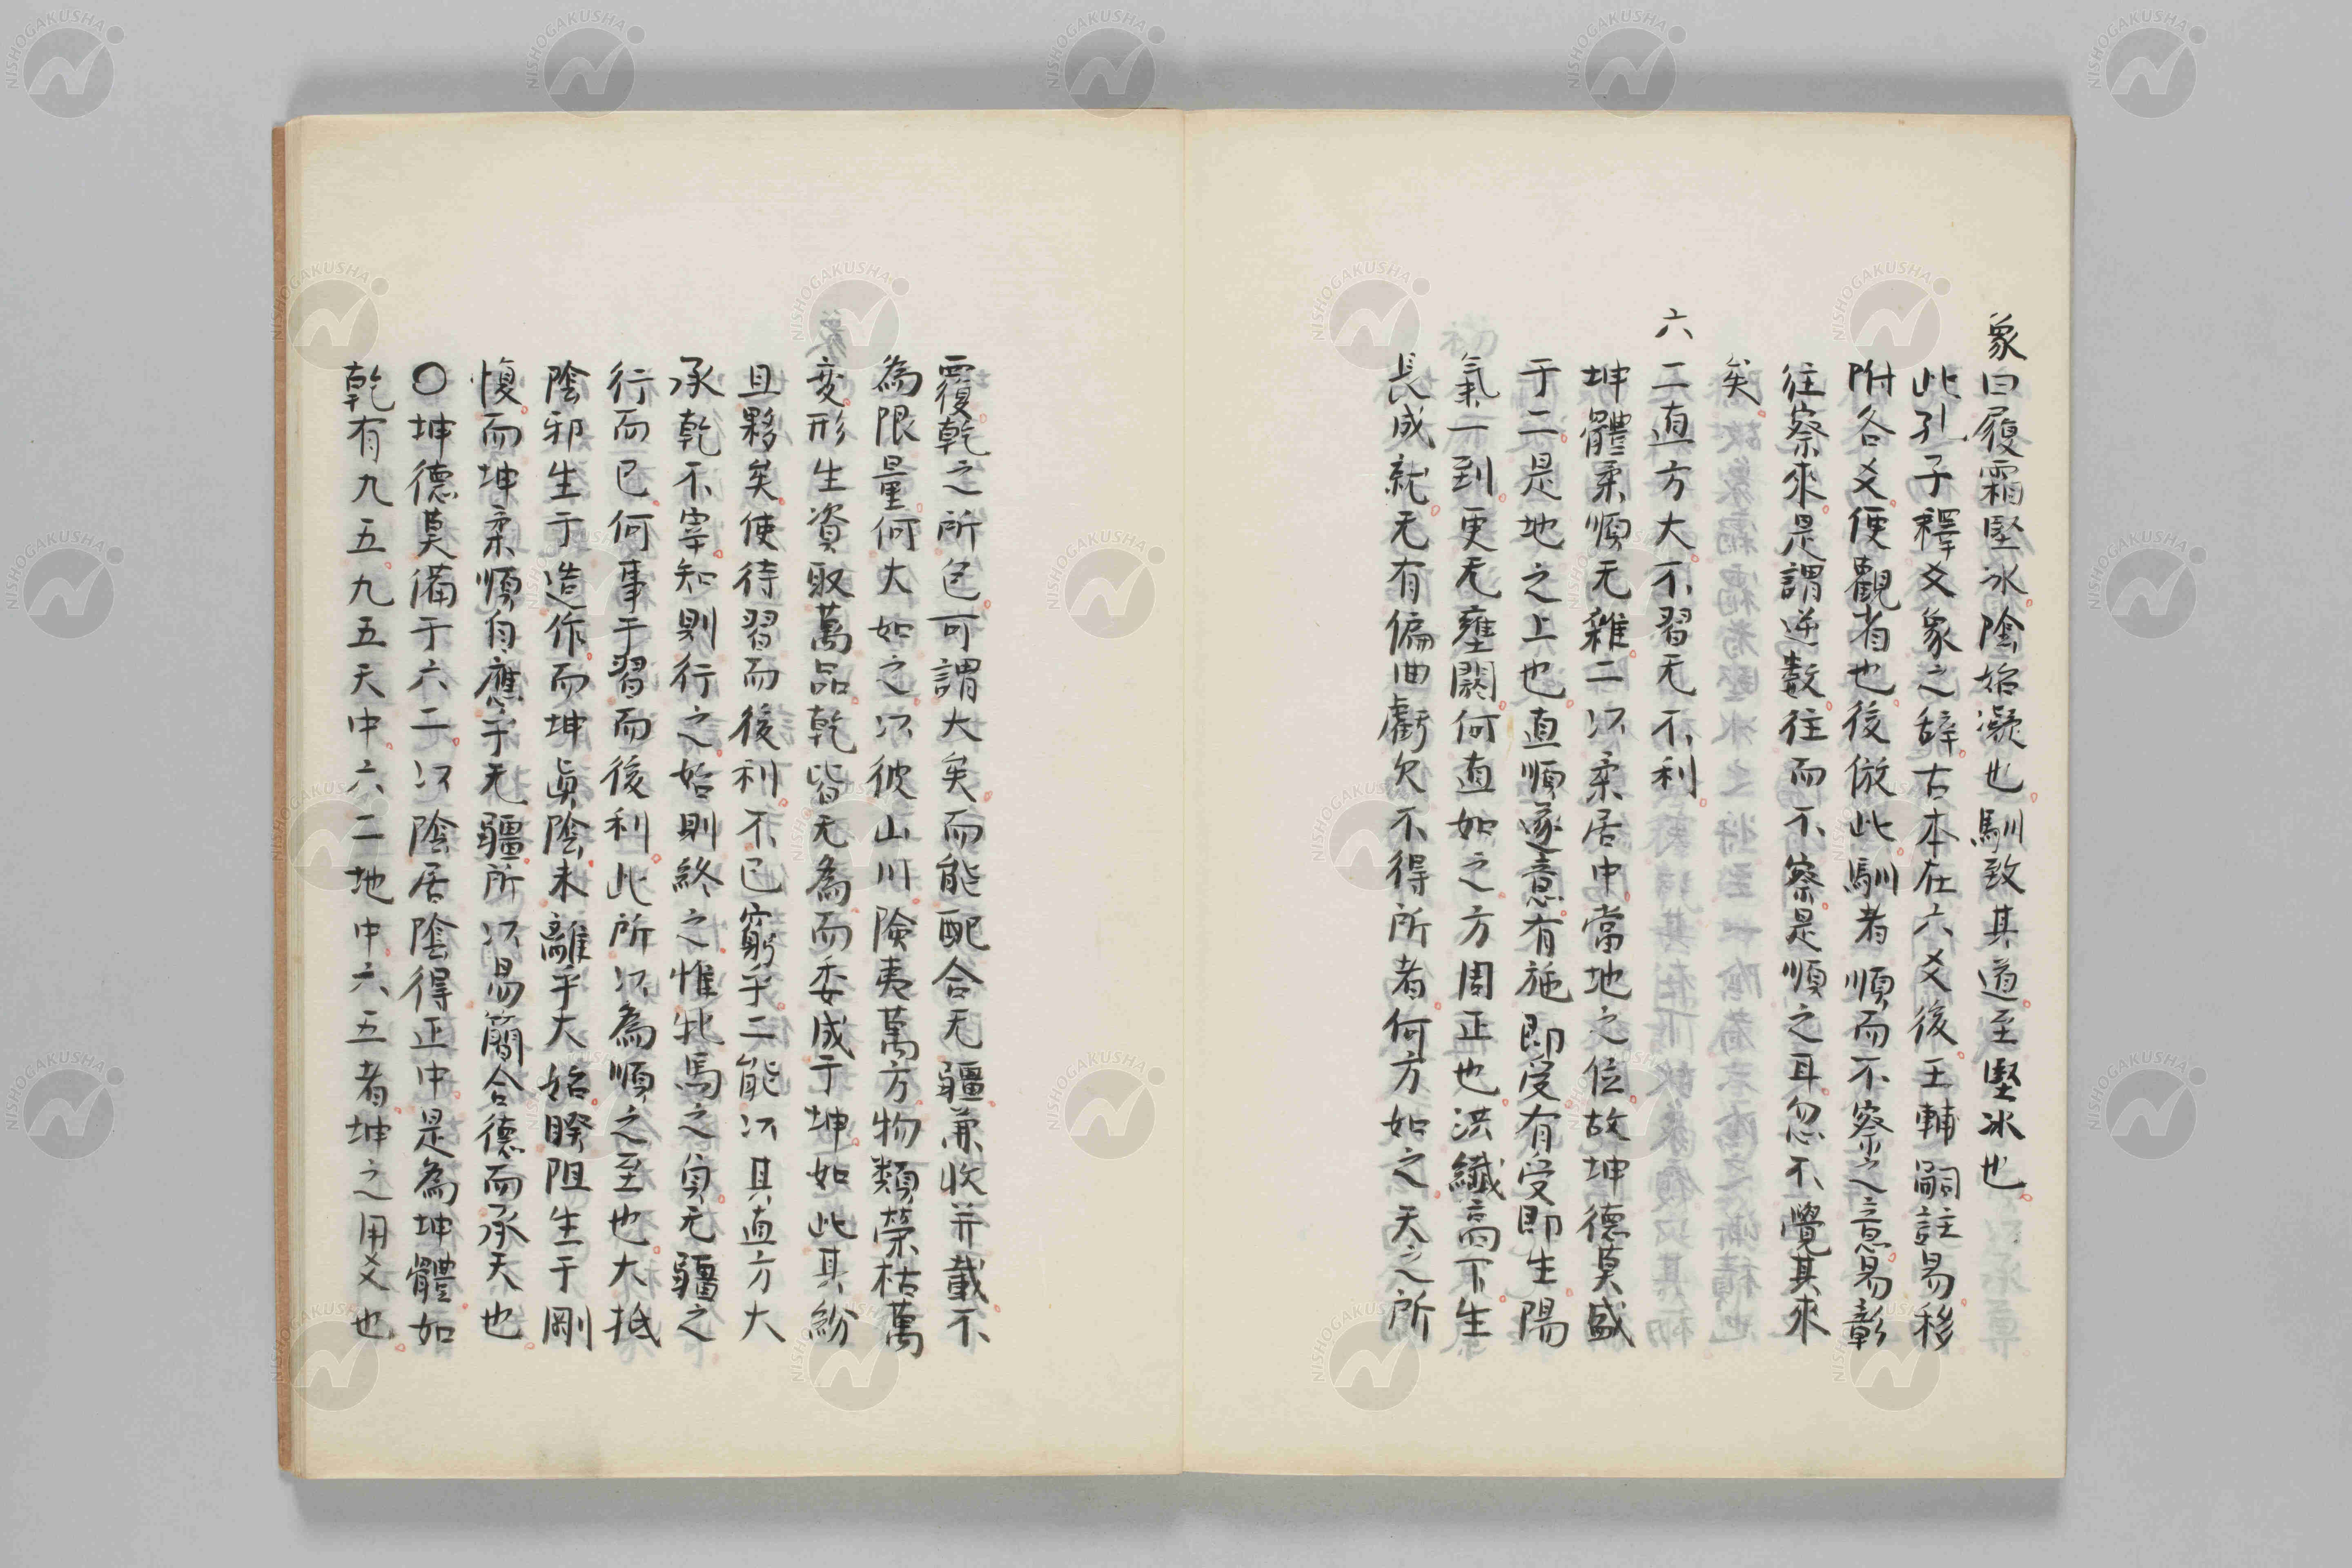 象曰履霜堅冰陰始凝也馴致其道至堅冰也
此孔子釋爻象之辭古本在六爻後王輔嗣註易移
附各爻便觀者也後倣此馴者順而不察之意易彰
往察來是謂逆數往而不察是順之耳忽不覺其來
矣
六二直方大不習无不利
坤體柔順无雜二以柔居中當地之位故坤德莫盛
于二是地之上也直順遂意有施即受有受即生陽
氣一到更无壅閼何直如之方周正也洪纖高下生
長成就无有偏曲虧欠不得所者何方如之天之所
覆乾之所包可謂大矣而能配合无疆兼收并載不
為限量何大如之以彼山川險夷萬方物類榮枯萬
変形生資取萬品乾皆无為而委成于坤如此其紛
且夥矣使待習而後利不已窮乎二能以其直方大
承乾不宰知則行之始則終之惟牝馬之貞无疆之
行而已何事于習而後利此所以為順之至也大抵
陰邪生于造作而坤眞陰未離乎大始睽阻生于剛
愎而坤柔順自應乎无疆所以易簡合德而承天也
〇坤德莫備于六二以陰居陰得正中是為坤體如
乾有九五九五天中六二地中六五者坤之用爻也